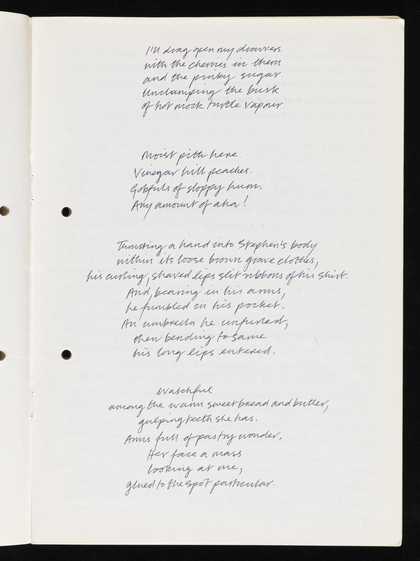 I'll drag open my drawers
with the cherries in them
and the pinky sugar
Unclamping the busk
of hot mock turtle vapour
Moist pith here
Vinegar hill peaches.
Gobfuls of sloppy hum.
Any amount of aha!
Thrusting a hand into Stephen's body
within its loose brown grave clothes,
his curling, shaved lips slit ribbons of his shirt.
And, bearing in his arms,
he fumbled in his pocket.
An umbrella he unfurled,
then bending to same
his long lips entered.
Watchful
among the warm sweetbread and butter,
gulping teeth she has.
Arms full of pastry wonder.
Her face a mass
looking at me,
glued to the spot particular.